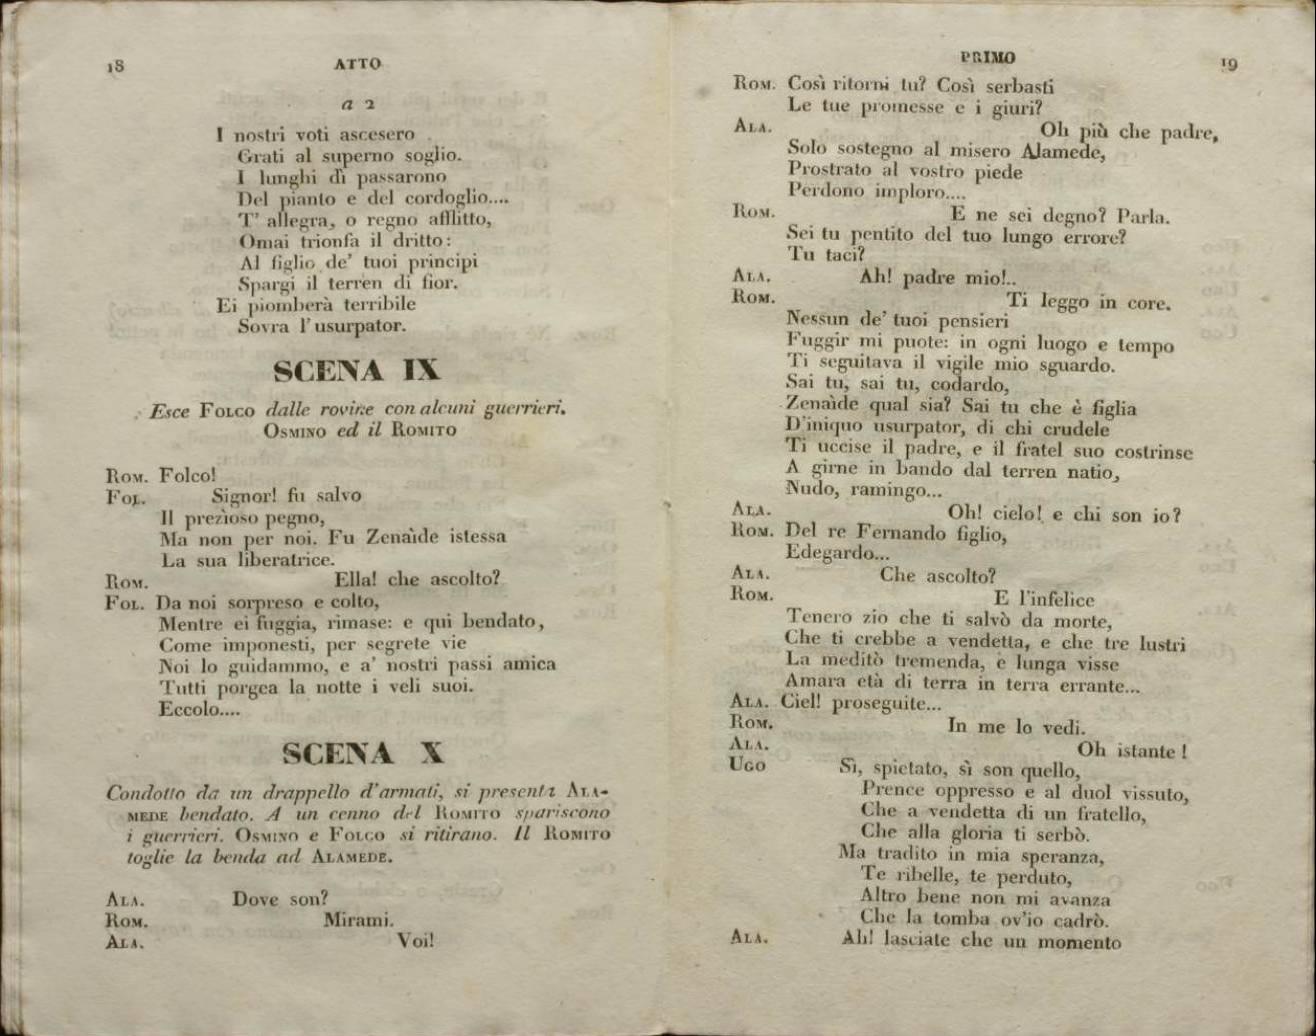 18 ATTO
a 2
I nostri voti ascesero
Grati al superno soglio.
I lunghi dì passarono
Del pianto e del cordoglio....
T' allegra, o regno afflitto,
Omai trionfa il dritto:
Al figlio de' tuoi principi
Spargi il terren di fior.
Ei piomberà terribile
Sovra l'usurpator.
SCENA IX
Esce FOLCO dalle rovine con alcuni guerrieri.
OSMINO ed il ROMITO
ROM. Folco!
FOL. Signor! fu salvo
Il prezïoso pegno,
Ma non per noi. Fu Zenaìde istessa
La sua liberatrice.
ROM. Ella! che ascolto?
FOL. Da noi sorpreso e colto,
Mentre ei fuggia, rimase: e qui bendato,
Come imponesti, per segrete vie
Noi lo guidammo, e a' nostri passi amica
Tutti porgea la notte i veli suoi.
Eccolo....
SCENA X
Condotto da un drappello d'armati, si presenta ALA-
MEDE bendato. A un cenno del ROMITO spariscono
i guerrieri. OSMINO e FOLCO si ritirano. Il ROMITO
toglie la benda ad ALAMEDE.
ALA. Dove son?
ROM. Mirami.
ALA. Voi!
PRIMO 19
ROM. Così ritorni tu? Così serbasti
Le tue promesse e i giuri?
ALA. Oh più che padre,
Solo sostegno al misero Alamede,
Prostrato al vostro piede
Perdono imploro....
ROM. E ne sei degno? Parla.
Sei tu pentito del tuo lungo errore?
Tu taci?
ALA. Ah! padre mio!..
ROM. Ti leggo in core.
Nessun de' tuoi pensieri
Fuggir mi puote: in ogni luogo e tempo
Ti seguitava il vigile mio sguardo.
Sai tu, sai tu, codardo,
Zenaìde qual sia? Sai tu che è figlia
D'iniquo usurpator, di chi crudele
Ti uccise il padre, e il fratel suo costrinse
A girne in bando dal terren natio,
Nudo, ramingo...
ALA. Oh! cielo! e chi son io?
ROM. Del re Fernando figlio,
Edegardo...
ALA. Che ascolto?
ROM. E l'infelice
Tenero zio che ti salvò da morte,
Che ti crebbe a vendetta, e che tre lustri
La meditò tremenda, e lunga visse
Amara età di terra in terra errante...
ALA. Ciel! proseguite...
ROM. In me lo vedi.
ALA. Oh istante!
UGO Sì, spietato, sì son quello,
Prence oppresso e al duol vissuto,
Che a vendetta di un fratello,
Che alla gloria ti serbò.
Ma tradito in mia speranza,
Te ribelle, te perduto,
Altro bene non mi avanza
Che la tomba ov'io cadrò.
ALA. Ah! lasciate che un momento